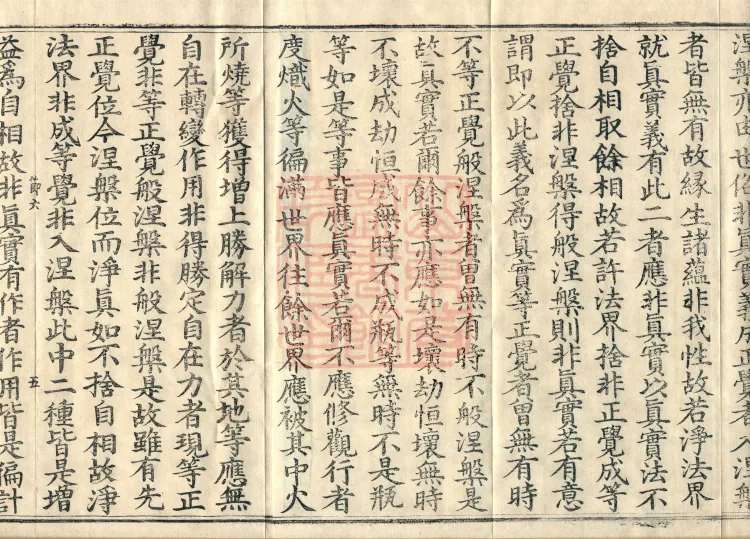 者皆無有故緣生諸蘊非我性故若淨法界
就真實義有此二者應非真實以真實法不
捨自相取餘相故若許法界捨非正覺成等
正覺捨非涅槃得般涅槃則非真實若有意
謂即以此義名為真實等正覺者曾無有時
不等正覺般涅槃者曾無有時不般涅槃是
故真實若爾餘事亦應如是壞劫恒壞無時
不壞成劫恒成無時不成瓶等無時不是瓶
等如是等事皆應真實若爾不應修觀行者
度熾火等徧滿世界往餘世界應被其中火
所燒等獲得增上勝解力者於其地等應無
自在轉變作用非得勝定自在力者現等正
覺非等正覺般涅槃非般涅槃是故雖有先
正覺位今涅槃位而淨真如不捨自相故淨
法界非成等覺非入涅槃此中二種皆是增
益為自相故非真實有作者作用皆是徧計
五